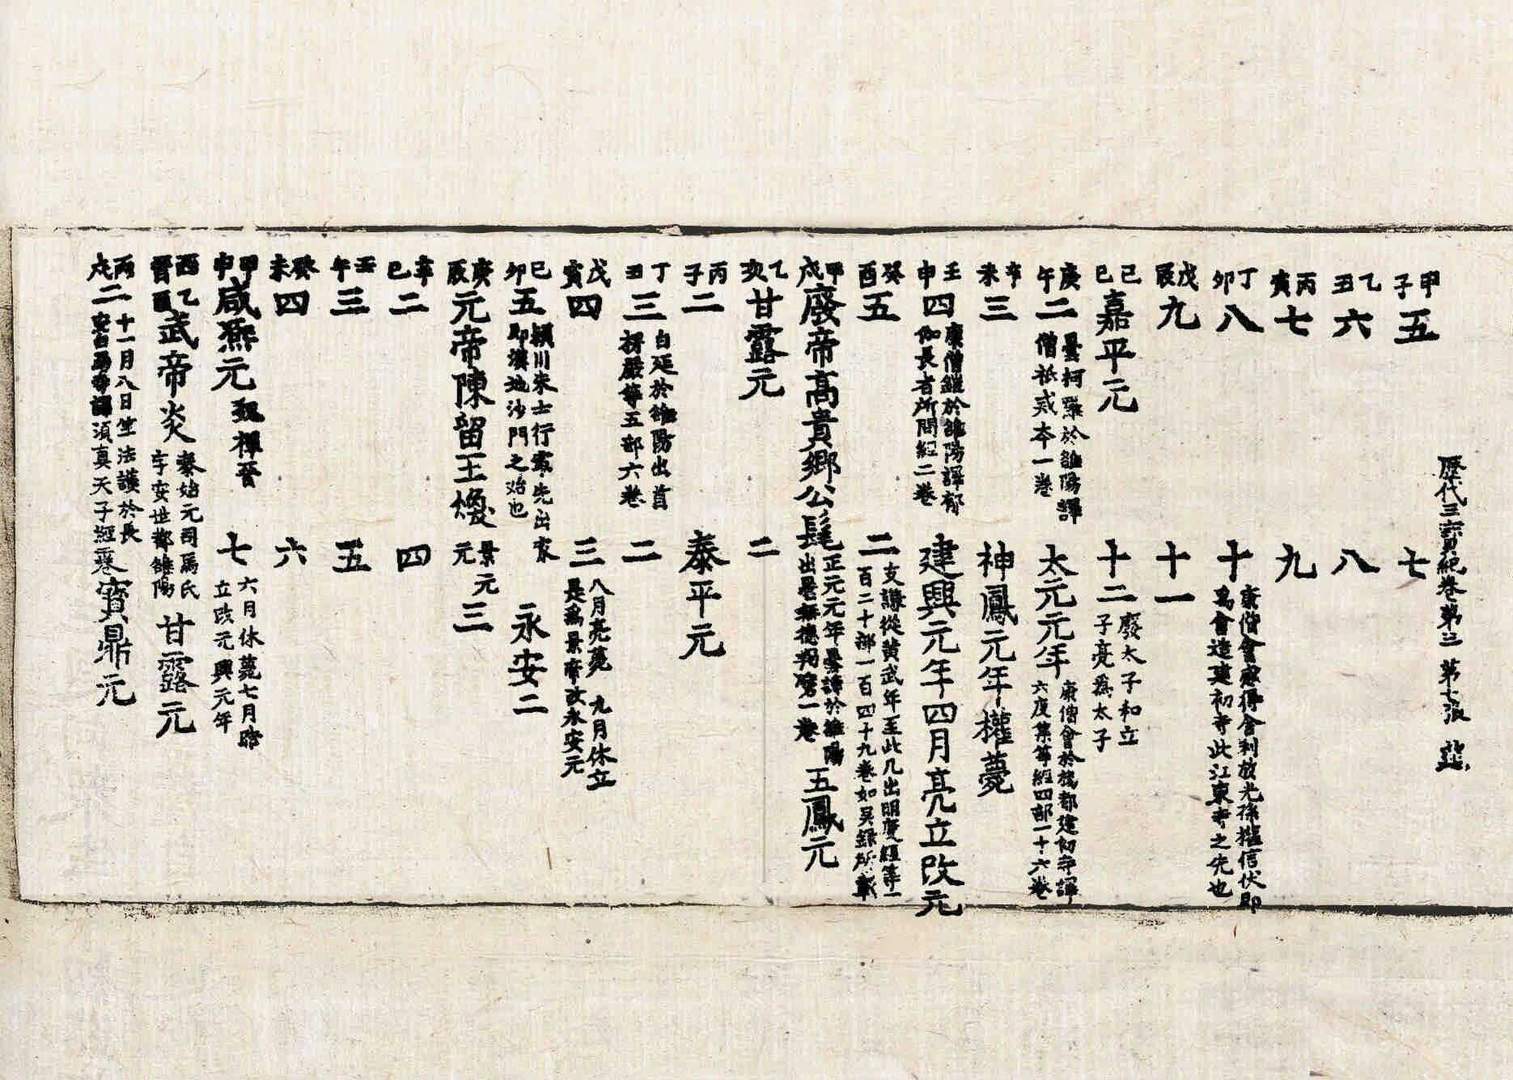 歷代三寶紀卷第三 第七張
甲子五 七
乙丑六 八
丙寅七 九
丁卯八 十 康僧會感得舍利放光孫權信伏即爲會造建初寺此江東寺之先也
戊辰九 十一
己巳嘉平元 十二 廢太子和立子亮爲太子
庚午二 曇柯羅於雒陽譯僧祇戒本一卷 太元元年 康僧會於楊都建初寺譯六度集等經四部一十六卷
辛未三 神鳳元年權薨
壬申四 康僧鎧於雒陽譯郁伽長者所問經二卷 建興元年四月亮立改元
癸酉五 二 支謙從黃武年至此凡出明度經等一百二十部一百四十九卷如吳錄所載
甲戌廢帝高貴鄉公髦 正元元年曇諦於雒陽出曇無德羯磨一卷 五鳳元
乙亥甘露元 二
丙子二 泰平元
丁丑三 白延於雒陽出首楞嚴等五部六卷 二
戊寅四 三 八月亮薨 九月休立是爲景帝改永安元
己卯五 潁川朱士行最先出家即漢地沙門之始也 永安二
庚辰元帝陳留王煥 景元元 三
辛巳二 四
壬午三 五
癸未四 六
甲申咸熙元 魏禪晉 七 六月休薨七月皓立改元興元年
晉乙酉武帝炎 泰始元司馬氏字安世都雒陽 甘露元
丙戌二 十一月八日竺法護於長安白馬寺譯須真天子經二卷 寶鼎元